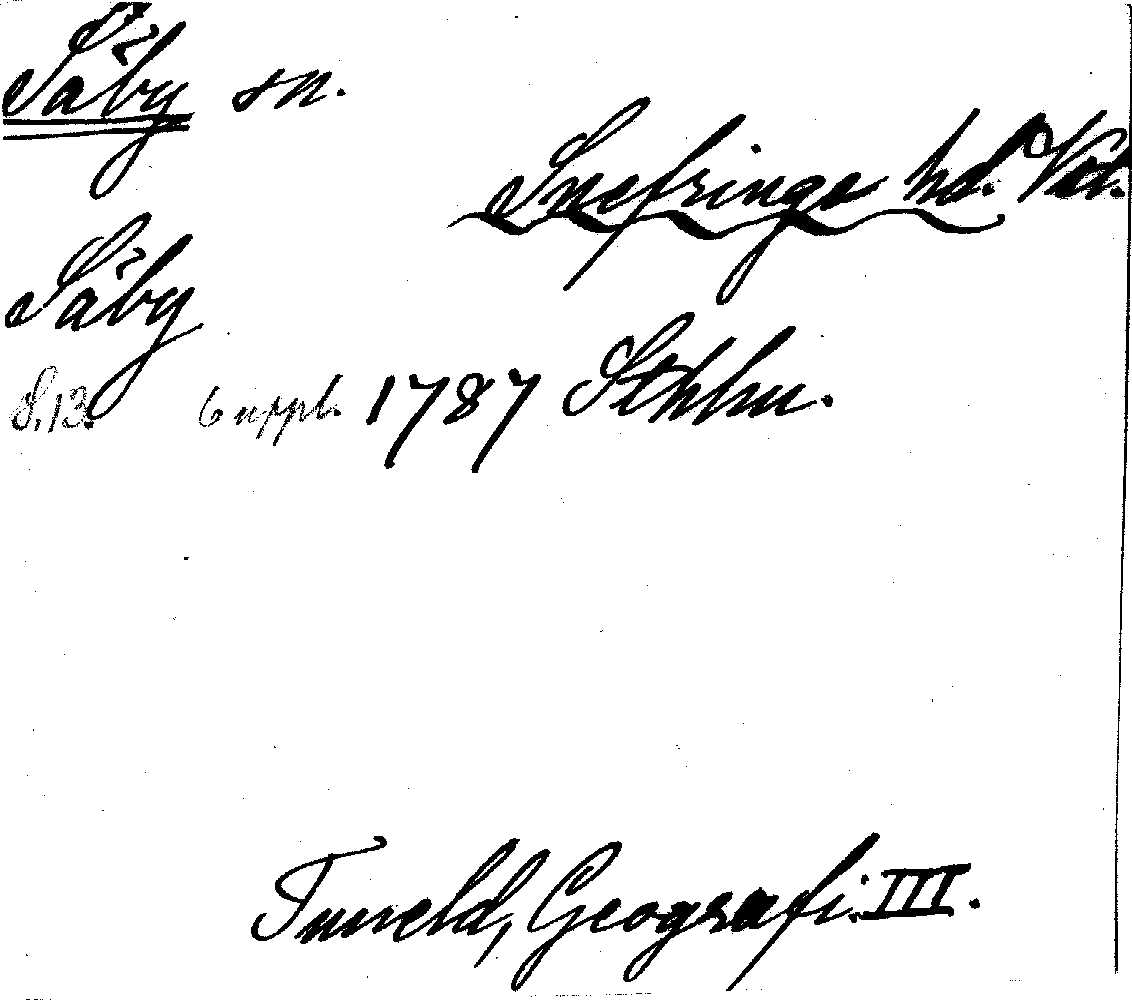 Säby sn.
Snefringe hd. Vstm.
Säby
S. 13. 6 uppl. 1787 Sthlm.
Tuneld, Geografi. III.